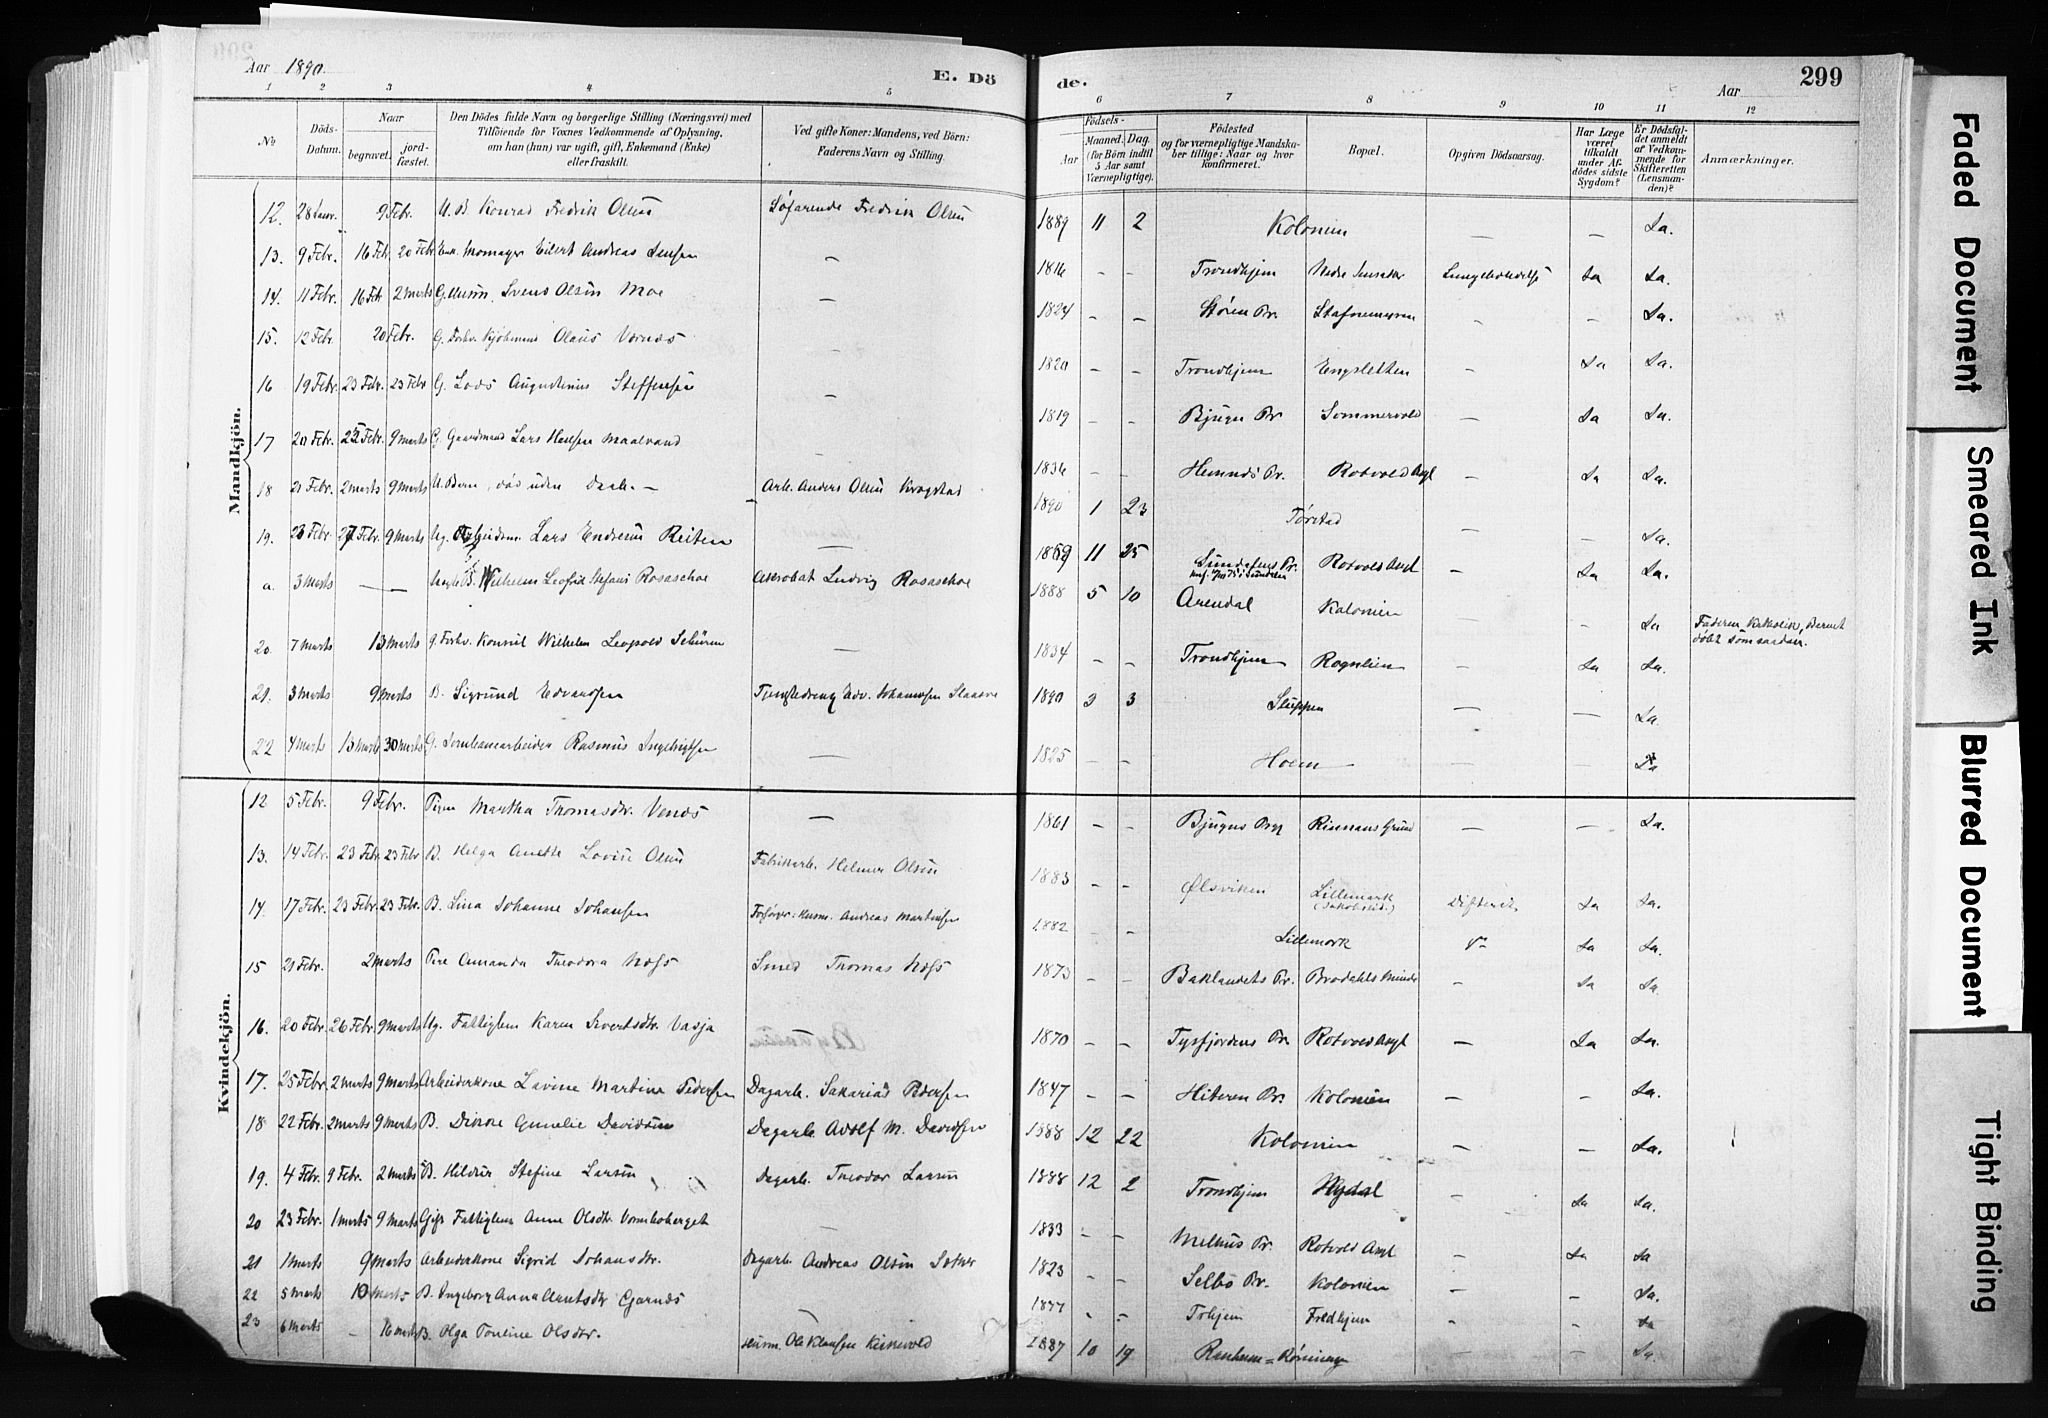 Aar 1890.
E. Dö
de.
Aar
299
1 2 3 4 5 6 7 8 9 10 11 12
No
Döds-Datum.
Naar
begravet.
jord-fæstet.
Den Dödes fulde Navn og borgerlige Stilling (Næringsvei) med
Tilföiende for Voxnes Vedkommende af Oplysning,
om han (hun) var ugift, gift, Enkemand (Enke)
eller fraskilt.
Ved gifte Koner: Mandens, ved Börn:
Faderens Navn og Stilling.
Födsels-
Aar
Maaned. Dag.
(for Börn indtil
5 Aar samt
Værnepligtige).
Födested
og for værnepligtige Mandska-
ber tillige: Naar og hvor
konfirmeret.
Bopæl.
Opgiven Dödsaarsag.
Har Læge
været
tilkaldt
under Af-
dödes sidste
Sygdom?
Er Dödsfal-
det anmeldt
af Vedkom-
mende for
Skifteretten
(Lensman-
den)?
Anmærkninger.
Mandkjön.
12. 28 Janr. 9 Febr. U. B. Konrad Fredrik Olsen Søfarende Fredrik Olsen 1889 11 2 Kolonien — — Ja.
13. 9 Febr. 16 Febr. 20 Febr. Eilert Andreas Jensen — 1816 - - Trondhjem Nedre Ja Ja.
14. 11 Febr. 16 Febr. 2 Marts G. Svend Olsen Moe — 1824 - - Støren Pr. — — Ja.
15. 12 Febr. 20 Febr. G. Forhv. Kjøbmand Olaus Vornæs — 1820 - - Trondhjem Engsletten — Ja Ja.
16 19 Febr. 23 Febr. 23 Febr. G. Lods Augustinus Steffensen — 1819 - - Bjugn Pr. Sommervold — Ja Ja.
17 20 Febr. 25 Febr. 9 Marts G. Gaardmand Lars Maalvand — 1836 - - Hemnæs Pr. Rotvold Asyl — Ja Ja.
18 21 Febr. 2 Marts 9 Marts U. Barn, død uden Daab. — Arb. Anders Olsen Krogstad 1890 1 23 Tørstad — — Ja.
19. 23 Febr. 27 Febr. 9 Marts Ug. Lars Endresen Reiten — 1869 11 25 Pr. Rotvold Asyl Ja Ja.
a. 3 Marts — B. Wilhelm Leofrid Stefani Rosaschae Akrobat Ludvig Rosaschae 1888 5 10 Arendal Kolonien — — Ja Faderen Katholik, Barnet
døbt som saadan.
20. 7 Marts 13 Marts g. Forhv. Konsul Wilhelm Leopold Schüren — 1834 - - Trondhjem Rognlien — Ja Ja.
21. 3 Marts 9 Marts B. Sigrund Edvardsen Tjenestedreng Edv. Johannessen 1890 2 3 Sluppen — — Ja.
22 4 Marts 13 Marts 30 Marts G. Jernbanearbeider Rasmus Ingebrigtsen — 1825 - - Hoem — — — Ja
Kvindekjön.
12 5 Febr. 9 Febr. Pigen Martha Thomasdtr. Venæs — 1861 - - Bjugns Prgj. Rinnans Grund — — Ja.
13. 14 Febr. 23 Febr. 23 Febr B. Helga Anette Lovise Olsen Fabrikarb. Helmer Olsen 1883 - - Ølsviken Lillemark Difterit. Ja Ja.
14. 17 Febr. 23 Febr. 23 Febr. B. Lina Johanne Johansen Andreas Martinsen 1882 - - Lillemark Ja Ja.
15 21 Febr. 2 Marts Pige Amanda Theodora Næss Smed Thomas Næss 1873 - - Baklandets Pr. Brodahls Minde — Ja Ja.
16. 20 Febr. 26 Febr. 9 Marts Ug. Fattiglem Karen Sivertsdtr. Vasja 1870 - - Tysfjordens Pr. Rotvold Asyl — Ja Ja.
17. 25 Febr. 2 Marts 9 Marts Arbeiderkone Lavine Martine Pedersen Dagarb. Sakarias Pedersen 1847 - - Hiteren Pr. Kolonien — — Ja.
18 22 Febr. 2 Marts 9 Marts B. Davidsen Dagarb. Adolf M. Davidsen 1888 12 22 Kolonien — — Ja.
19. 4 Febr. 9 Febr. 2 Marts B. Hildur Stefine Larsen Dagarb. Theodor Larsen 1888 12 2 Trondhjem Nydal — Ja Ja.
20 23 Febr. 1 Marts 9 Marts Gift Fattiglem Anne Olsdtr. — 1833 - - Melhus Pr. Rotvold Asyl — Ja Ja
21 1 Marts 9 Marts Arbeiderkone Sigrid Johansdtr. Dagarb. Andreas Olsen 1823 - - Selbo Pr. Kolonien — — Ja.
22 5 Marts 10 Marts B. Ingeborg Anna Arntsdtr Gjernæs — - - Trhjem Fredhjem — — Ja
23 6 Marts - 16 Marts B. Olga Pauline Olsdtr. Husm. Ole Klausen 1887 10 19 Ranheim — — Ja.
Faded Document
Smeared Ink
Blurred Document
Tight Binding